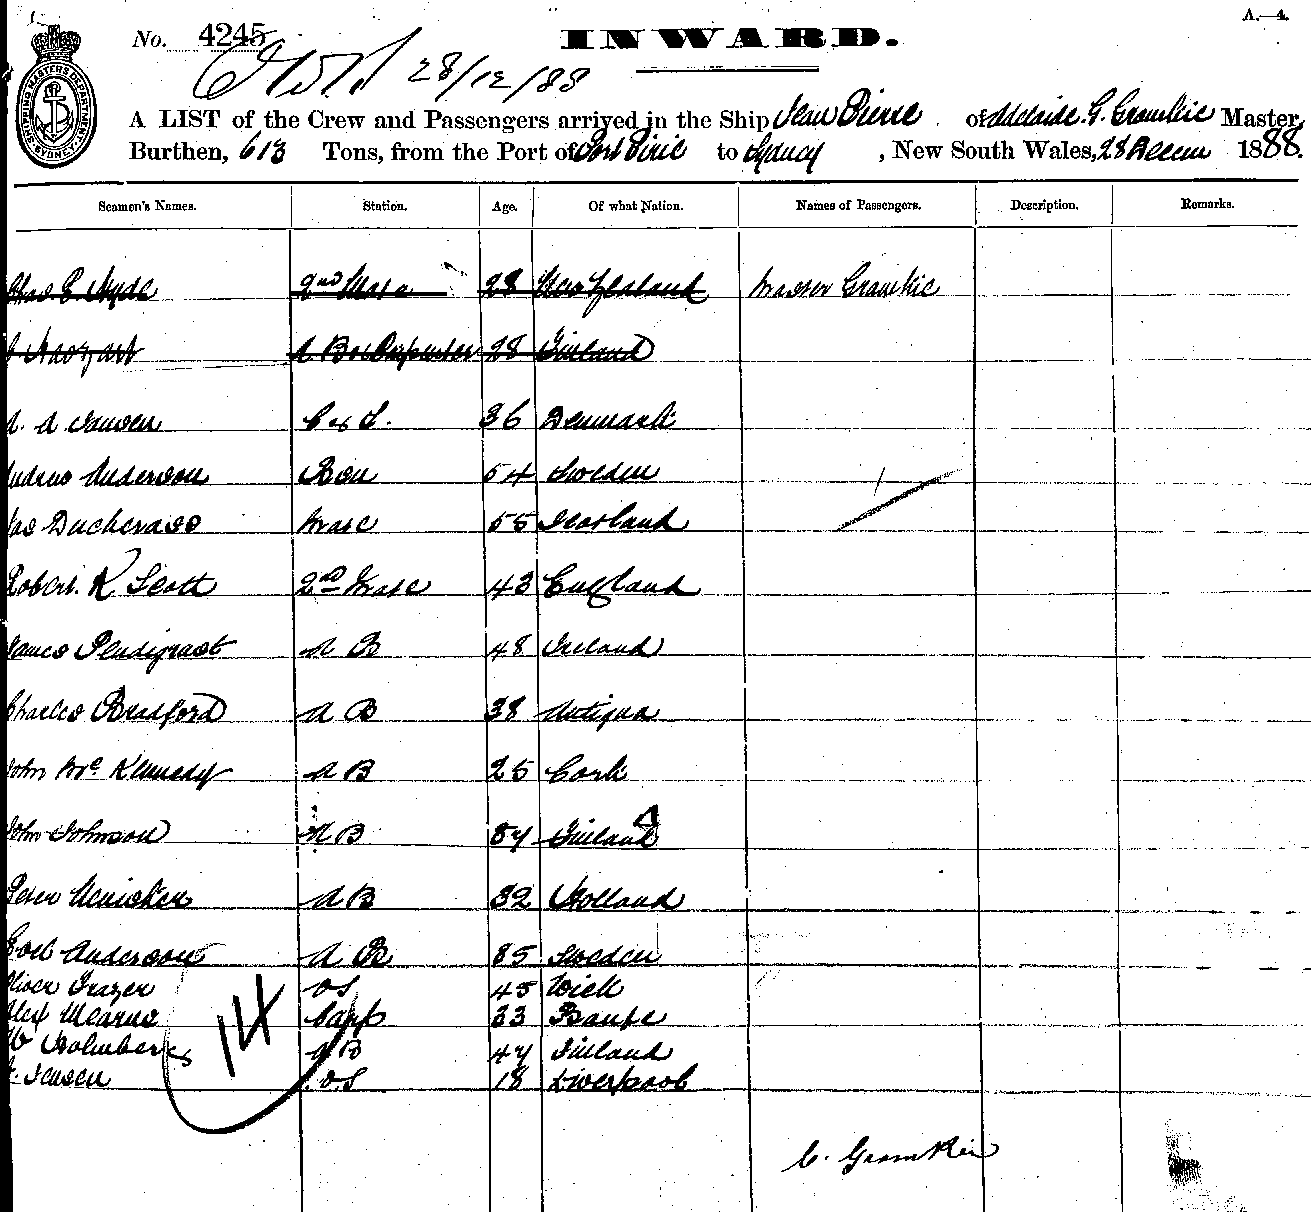 A.—4.
No. 4245
INWARD.
28/12/88
SHIPPING MASTERS DEPARTMENT SYDNEY
A LIST of the Crew and Passengers arrived in the Ship Jean Pierre of Adelaide. G. Gramkie Master,
Burthen, 613 Tons, from the Port of Port Pirie to Sydney, New South Wales, 28 Decem 1888.
Seamen's Names. Station. Age. Of what Nation. Names of Passengers. Description. Remarks.
Chas E Hyde 2nd Mate 28 New Zealand Master Gramkie
A B & Carpenter 28 Finland
A. A Jansen C & S. 36 Denmark
Andrew Anderson Bsn 54 Sweden
Jas Mate 55 Scotland
Robert K Scott 2nd Mate 43 England
James Pendigrast A B 48 Ireland
Charles Bradford A B 38 Antigua
John Mc Kennedy A B 25 Cork
John Johnson A B 37 Finland
Peter A B 32 Holland
Anderson A B 35 Sweden
Oliver Frazer OS 45 Wick
Alex Mearns Carp 33 Banff
W Holmberg A B 47 Finland
Jensen OS 18 Liverpool
14
C. Gramkie